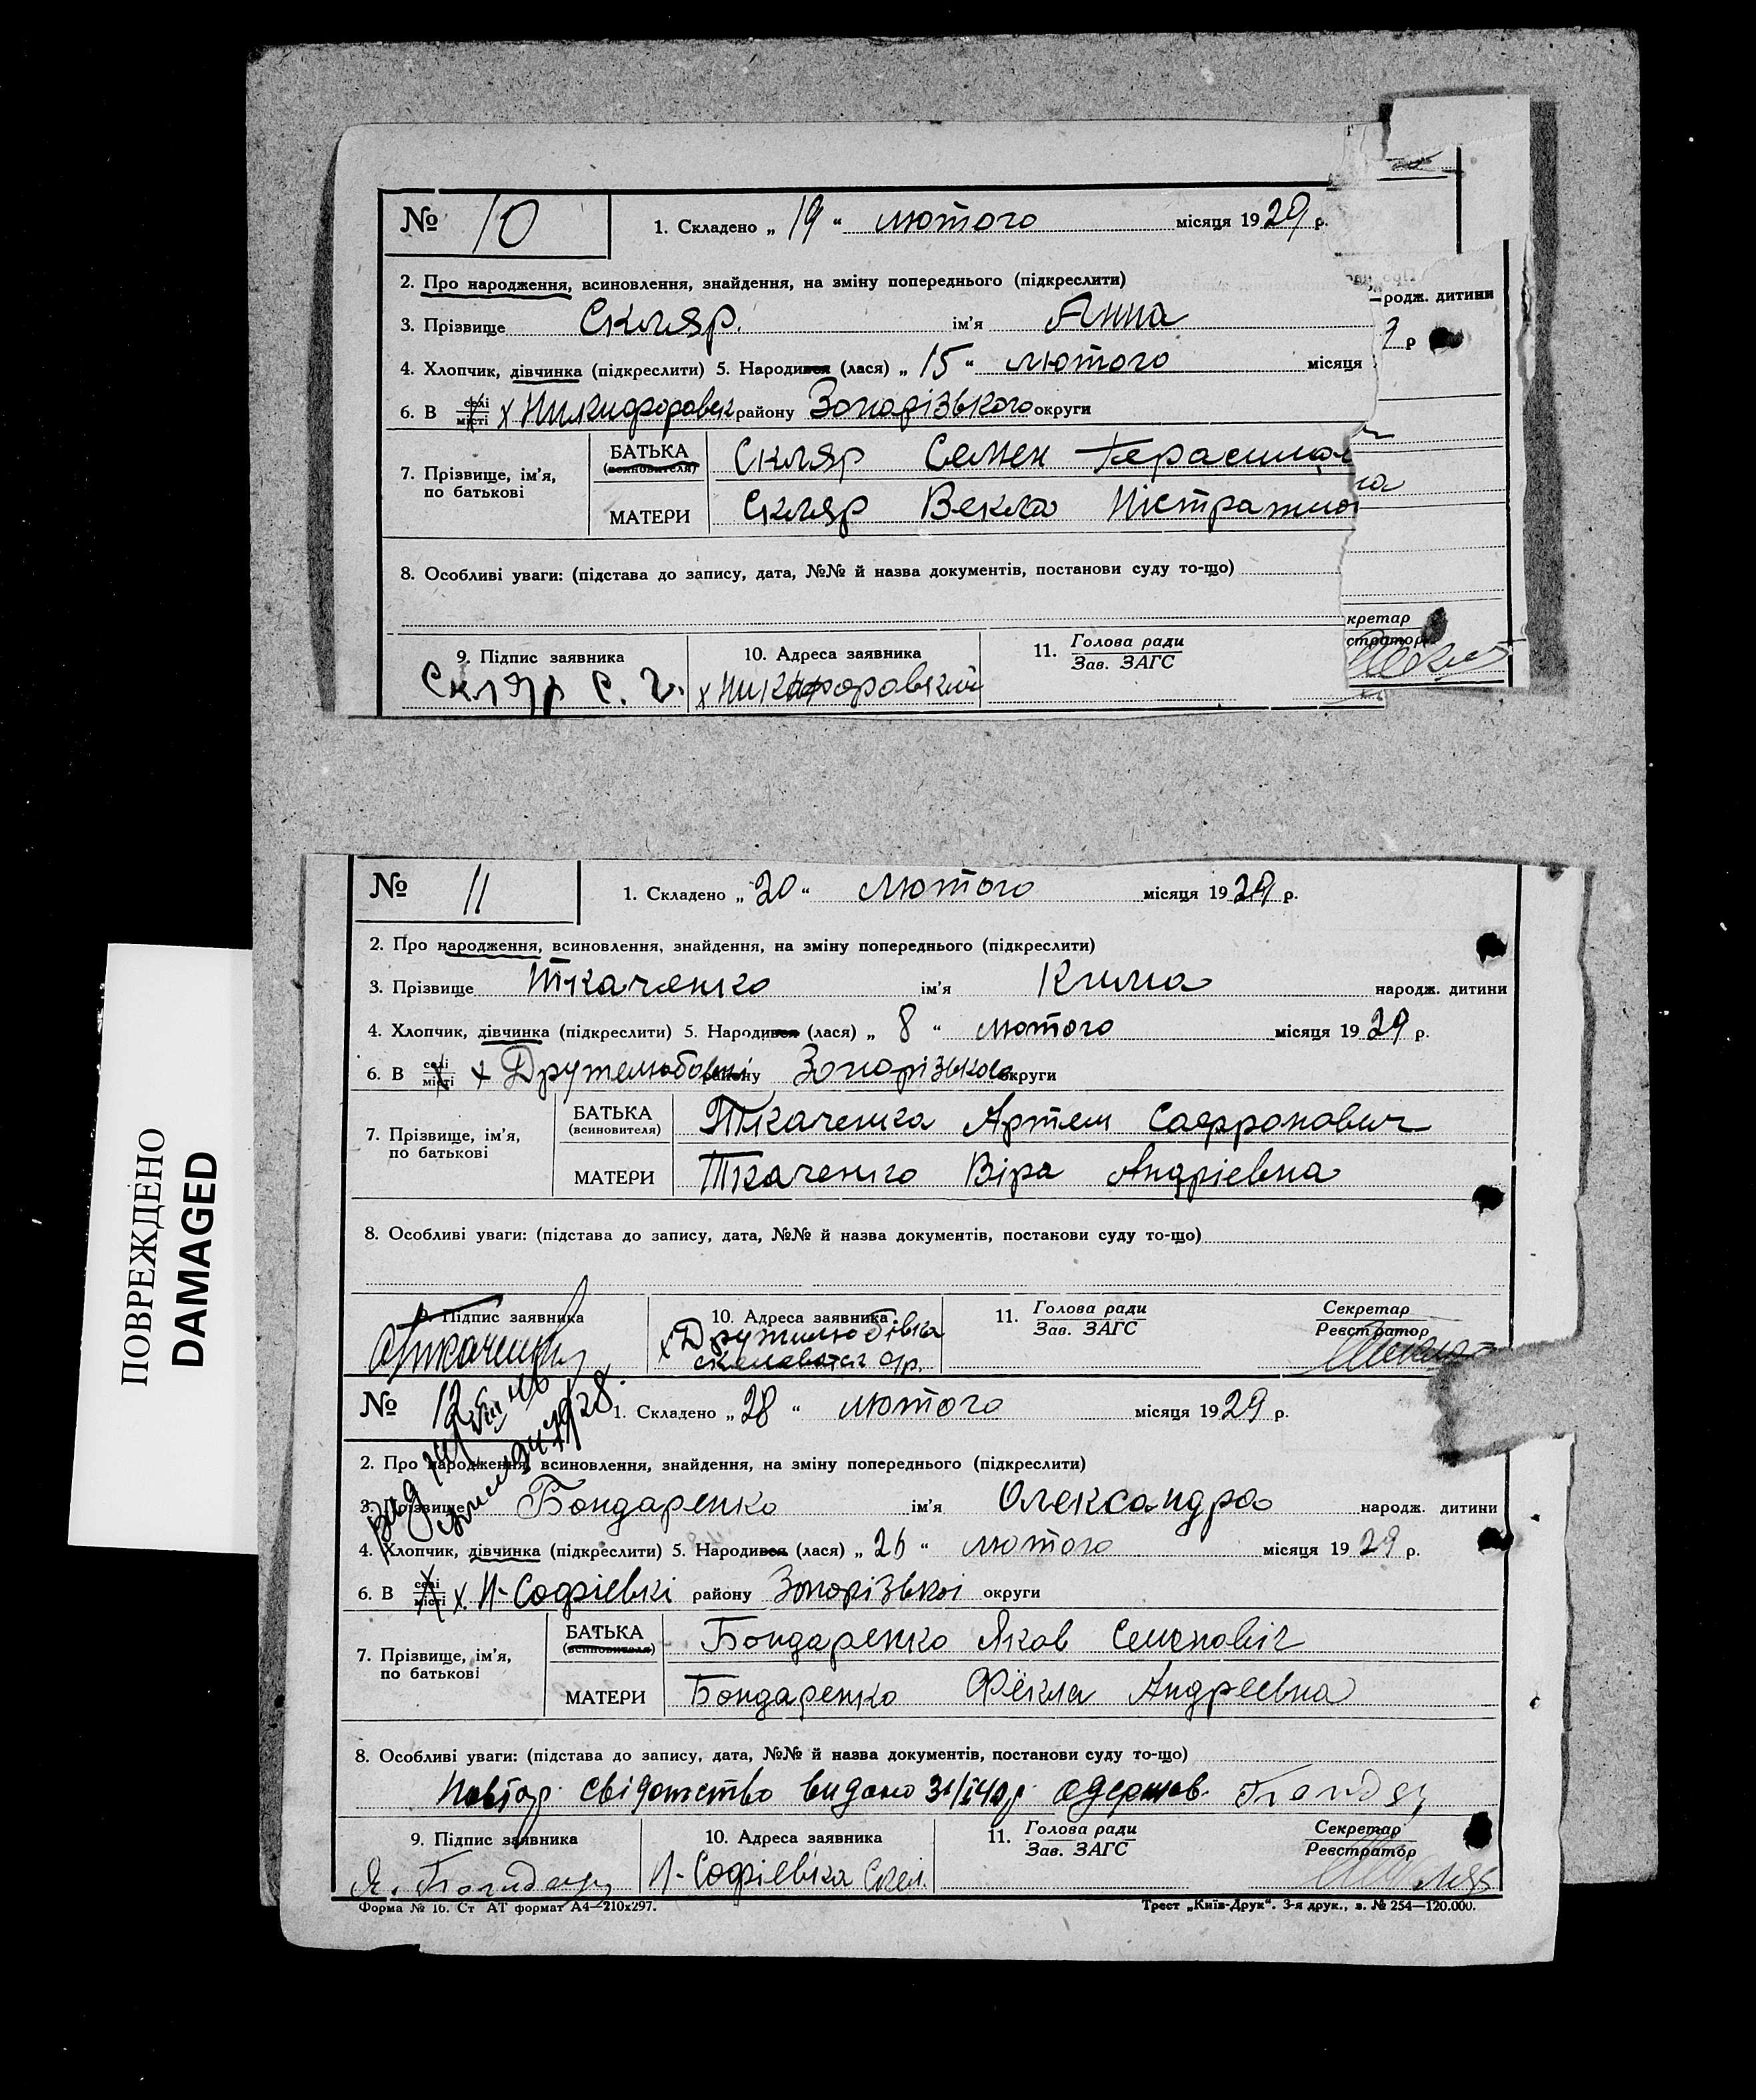 № 10 1. Складено „ 19 “ лютого місяця 1929 р.
2. Про народження, всиновлення, знайдення, на зміну попереднього (підкреслити)
3. Прізвище Скляр. ім'я Анна родж. дитини
4. Хлопчик, дівчинка (підкреслити) 5. Народився (лася) „ 15 “ лютого місяця р
6. В селі місті х району Запорізького округи
7. Прізвище, ім'я, по батькові
БАТЬКА (всиновителя) Скляр Семен
МАТЕРИ Скляр Векла
8. Особливі уваги: (підстава до запису, дата, №№ й назва документів, постанови суду то-що)
9. Підпис заявника 10. Адреса заявника 11. Голова ради Зав. ЗАГС кретар стратор
Скляр С. Г. х
№ 11 1. Складено „ 20 “ лютого місяця 1929 р.
2. Про народження, всиновлення, знайдення, на зміну попереднього (підкреслити)
3. Прізвище Ткаченко ім'я Кима народж. дитини
4. Хлопчик, дівчинка (підкреслити) 5. Народився (лася) „ 8 “ лютого місяця 1929 р.
6. В селі місті х району Запорізького округи
7. Прізвище, ім'я, по батькові
БАТЬКА (всиновителя) Ткаченка Артем Сафронович
МАТЕРИ Ткаченко Віра Андріевна
8. Особливі уваги: (підстава до запису, дата, №№ й назва документів, постанови суду то-що)
9. Підпис заявника 10. Адреса заявника 11. Голова ради Зав. ЗАГС Секретар Реєстратор
Ткаченко х Дружилюбівка
№ 12 1. Складено „ 28 “ лютого місяця 1929 р.
2. Про народження, всиновлення, знайдення, на зміну попереднього (підкреслити)
3. Прізвище Бондаренко ім'я Олександра народж. дитини
4. Хлопчик, дівчинка (підкреслити) 5. Народився (лася) „ 26 “ лютого місяця 1929 р.
6. В селі місті х. Н-Софіевкі району Запорізькоі округи
7. Прізвище, ім'я, по батькові
БАТЬКА (всиновителя) Бондаренко Яков Семеновіч
МАТЕРИ Бондаренко Фёкла Андреевна
8. Особливі уваги: (підстава до запису, дата, №№ й назва документів, постанови суду то-що)
Повтор. свідотство видано
9. Підпис заявника 10. Адреса заявника 11. Голова ради Зав. ЗАГС Секретар Реєстратор
Я. Н-Софіевка
Форма № 16. Ст АТ формат А4—210х297. Трест „Київ-Друк“. 3-я друк., з. № 254—120.000.
ПОВРЕЖДЕНО
DAMAGED